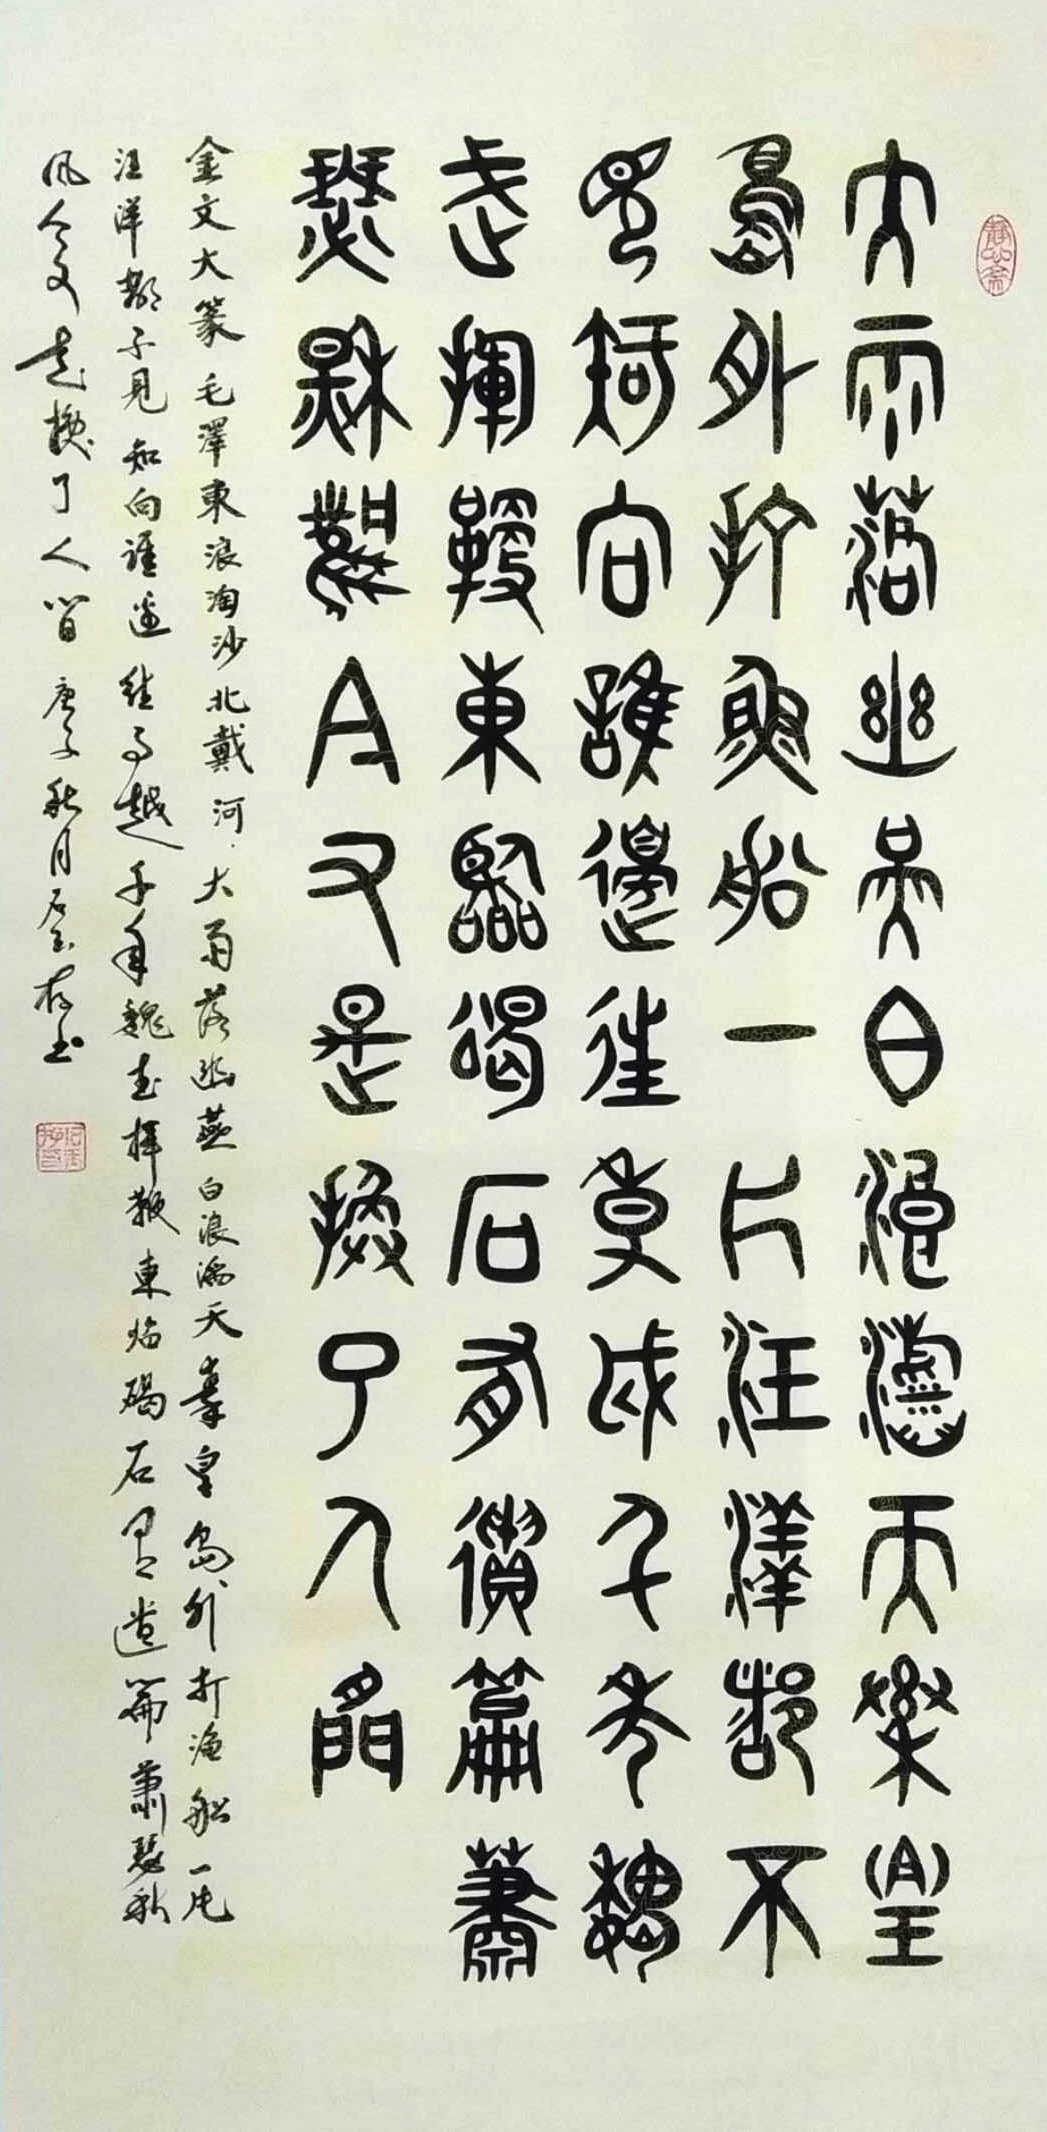 靜心齋
大雨落幽燕白浪滔天秦皇
島外打魚船一片汪洋都不
見知向誰邊往事越千年魏
武揮鞭東臨碣石有遺篇蕭
瑟秋風今又是換了人間
金文大篆毛澤東浪淘沙北戴河·大雨落幽燕白浪滔天秦皇島外打渔船一片
汪洋都不見知向誰邊往事越千年魏武揮鞭東临碣石有遺篇蕭瑟秋
风今又是換了人间庚子秋月石存书